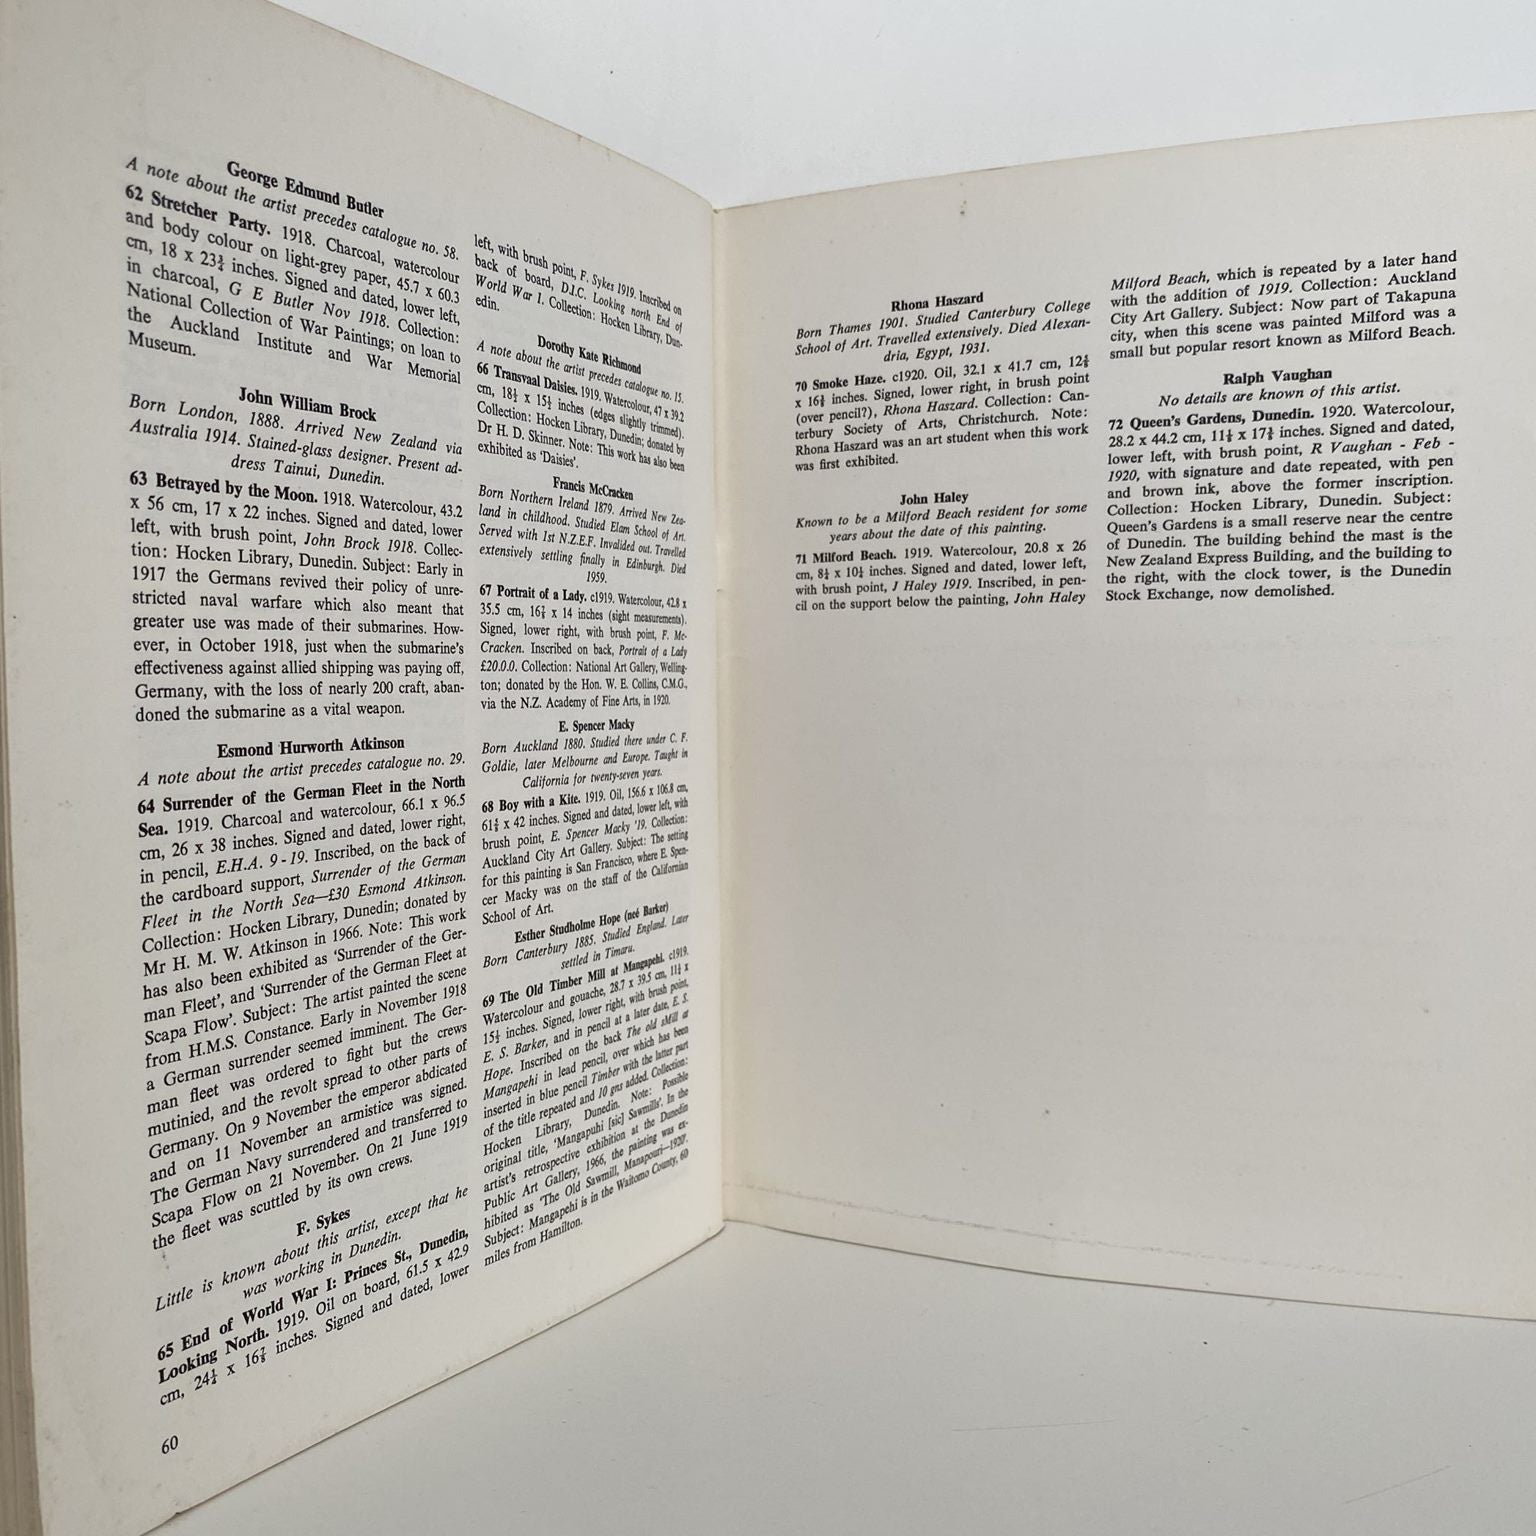 George Edmund Butler
A note about the artist precedes catalogue no. 58.
62 Stretcher Party. 1918. Charcoal, watercolour
and body colour on light-grey paper, 45.7 x 60.3
cm, 18 x 23¾ inches. Signed and dated, lower left,
in charcoal, G E Butler Nov 1918. Collection:
National Collection of War Paintings; on loan to
the Auckland Institute and War Memorial
Museum.
John William Brock
Born London, 1888. Arrived New Zealand via
Australia 1914. Stained-glass designer. Present ad-
dress Tainui, Dunedin.
63 Betrayed by the Moon. 1918. Watercolour, 43.2
x 56 cm, 17 x 22 inches. Signed and dated, lower
left, with brush point, John Brock 1918. Collec-
tion: Hocken Library, Dunedin. Subject: Early in
1917 the Germans revived their policy of unre-
stricted naval warfare which also meant that
greater use was made of their submarines. How-
ever, in October 1918, just when the submarine's
effectiveness against allied shipping was paying off,
Germany, with the loss of nearly 200 craft, aban-
doned the submarine as a vital weapon.
Esmond Hurworth Atkinson
A note about the artist precedes catalogue no. 29.
64 Surrender of the German Fleet in the North
Sea. 1919. Charcoal and watercolour, 66.1 x 96.5
cm, 26 x 38 inches. Signed and dated, lower right,
in pencil, E.H.A. 9-19. Inscribed, on the back of
the cardboard support, Surrender of the German
Fleet in the North Sea—£30 Esmond Atkinson.
Collection: Hocken Library, Dunedin; donated by
Mr H. M. W. Atkinson in 1966. Note: This work
has also been exhibited as 'Surrender of the Ger-
man Fleet', and 'Surrender of the German Fleet at
Scapa Flow'. Subject: The artist painted the scene
from H.M.S. Constance. Early in November 1918
a German surrender seemed imminent. The Ger-
man fleet was ordered to fight but the crews
mutinied, and the revolt spread to other parts of
Germany. On 9 November the emperor abdicated
and on 11 November an armistice was signed.
The German Navy surrendered and transferred to
Scapa Flow on 21 November. On 21 June 1919
the fleet was scuttled by its own crews.
F. Sykes
Little is known about this artist, except that he
was working in Dunedin.
65 End of World War I: Princes St., Dunedin,
Looking North. 1919. Oil on board, 61.5 x 42.9
cm, 24¼ x 16⅞ inches. Signed and dated, lower
60
left, with brush point, F. Sykes 1919. Inscribed on
back of board, D.I.C. Looking north End of
World War I. Collection: Hocken Library, Dun-
edin.
Dorothy Kate Richmond
A note about the artist precedes catalogue no. 15.
66 Transvaal Daisies. 1919. Watercolour, 47 x 39.2
cm, 18½ x 15½ inches (edges slightly trimmed).
Collection: Hocken Library, Dunedin; donated by
Dr H. D. Skinner. Note: This work has also been
exhibited as 'Daisies'.
Francis McCracken
Born Northern Ireland 1879. Arrived New Zea-
land in childhood. Studied Elam School of Art.
Served with 1st N.Z.E.F. Invalided out. Travelled
extensively settling finally in Edinburgh. Died
1959.
67 Portrait of a Lady. c1919. Watercolour, 42.8 x
35.5 cm, 16⅞ x 14 inches (sight measurements).
Signed, lower right, with brush point, F. Mc-
Cracken. Inscribed on back, Portrait of a Lady
£20.0.0. Collection: National Art Gallery, Welling-
ton; donated by the Hon. W. E. Collins, C.M.G.,
via the N.Z. Academy of Fine Arts, in 1920.
E. Spencer Macky
Born Auckland 1880. Studied there under C. F.
Goldie, later Melbourne and Europe. Taught in
California for twenty-seven years.
68 Boy with a Kite. 1919. Oil, 156.6 x 106.8 cm,
x 42 inches. Signed and dated, lower left, with
brush point, E. Spencer Macky '19. Collection:
Auckland City Art Gallery. Subject: The setting
for this painting is San Francisco, where E. Spen-
cer Macky was on the staff of the Californian
School of Art.
Esther Studholme Hope (neé Barker)
Born Canterbury 1885. Studied England. Later
settled in Timaru.
69 The Old Timber Mill at Mangapehi. c1919.
Watercolour and gouache, 28.7 x 39.5 cm, x
inches. Signed, lower right, with brush point,
E. S. Barker, and in pencil at a later date, E. S.
Hope. Inscribed on the back The old sMill at
Mangapehi in lead pencil, over which has been
inserted in blue pencil Timber with the latter part
of the title repeated and 10 gns added. Collection:
Hocken Library, Dunedin. Note: Possible
original title, 'Mangapuhi [sic] Sawmills'. In the
artist's retrospective exhibition at the Dunedin
Public Art Gallery, 1966, the painting was ex-
hibited as 'The Old Sawmill, Manapouri—1920'.
Subject: Mangapehi is in the Waitomo County, 60
miles from Hamilton.
Rhona Haszard
Born Thames 1901. Studied Canterbury College
School of Art. Travelled extensively. Died Alexan-
dria, Egypt, 1931.
70 Smoke Haze. c1920. Oil, 32.1 x 41.7 cm,
x inches. Signed, lower right, in brush point
(over pencil?), Rhona Haszard. Collection: Can-
terbury Society of Arts, Christchurch. Note:
Rhona Haszard was an art student when this work
was first exhibited.
John Haley
Known to be a Milford Beach resident for some
years about the date of this painting.
71 Milford Beach. 1919. Watercolour, 20.8 x 26
cm, 8¼ x 10¼ inches. Signed and dated, lower left,
with brush point, J Haley 1919. Inscribed, in pen-
cil on the support below the painting, John Haley
Milford Beach, which is repeated by a later hand
with the addition of 1919. Collection: Auckland
City Art Gallery. Subject: Now part of Takapuna
city, when this scene was painted Milford was a
small but popular resort known as Milford Beach.
Ralph Vaughan
No details are known of this artist.
72 Queen's Gardens, Dunedin. 1920. Watercolour,
28.2 x 44.2 cm, x inches. Signed and dated,
lower left, with brush point, R Vaughan - Feb -
1920, with signature and date repeated, with pen
and brown ink, above the former inscription.
Collection: Hocken Library, Dunedin. Subject:
Queen's Gardens is a small reserve near the centre
of Dunedin. The building behind the mast is the
New Zealand Express Building, and the building to
the right, with the clock tower, is the Dunedin
Stock Exchange, now demolished.